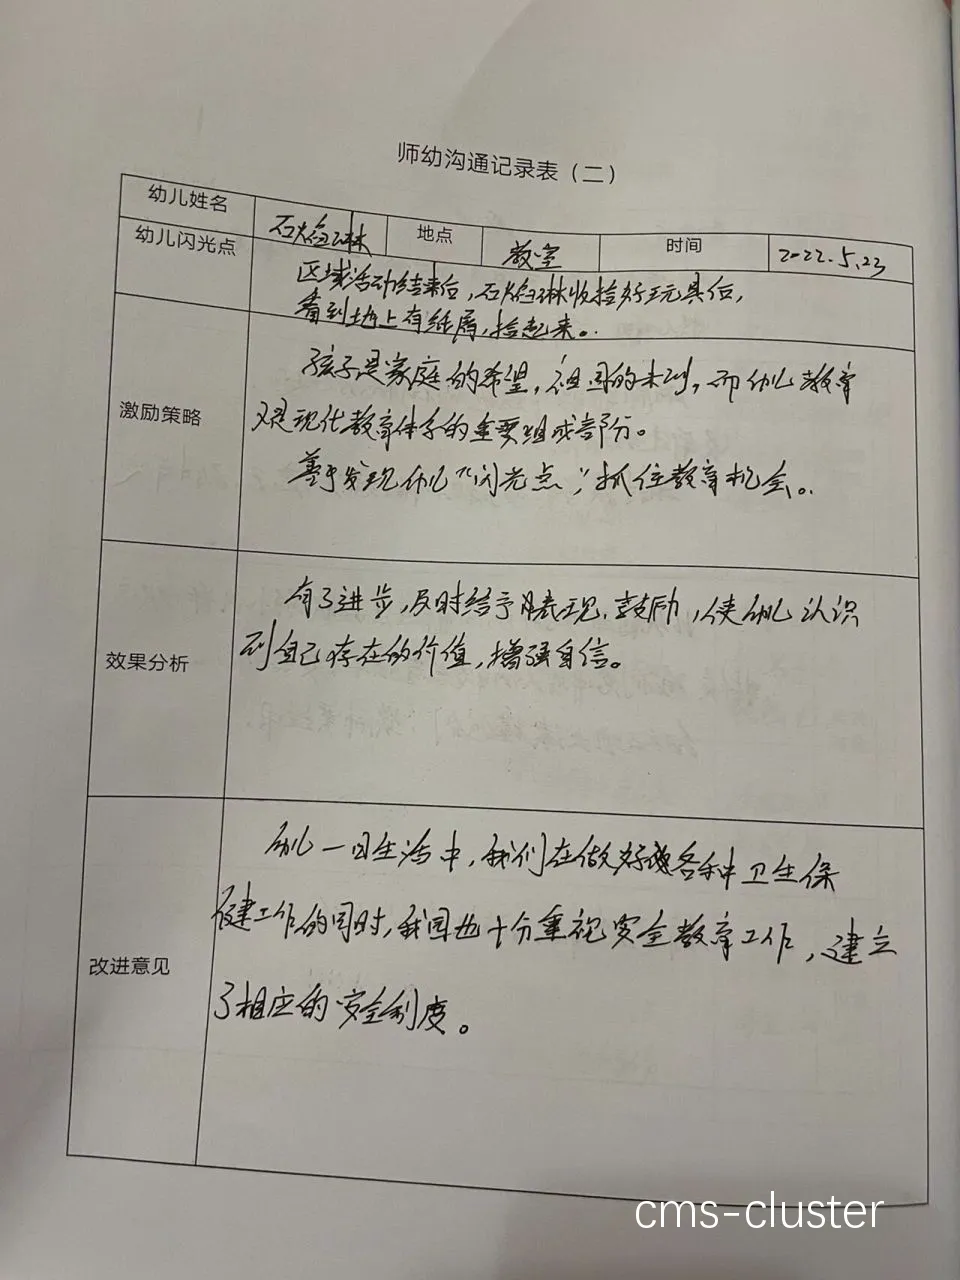 师幼沟通记录表（二）
幼儿姓名 石焰琳 地点 教室 时间 2022.5.23
幼儿闪光点 区域活动结束后，石焰琳收捡好玩具后，
看到地上有纸屑，捡起来。
激励策略 孩子是家庭的希望，祖国的未来，而幼儿教育
又是现代教育体系的重要组成部分。
善于发现幼儿“闪光点”，抓住教育机会。
效果分析 有了进步，及时给予表现、鼓励，使幼儿认识
到自己存在的价值，增强自信。
改进意见 幼儿一日生活中，我们在做好各种卫生保
健工作的同时，我园也十分重视安全教育工作，建立
了相应的安全制度。
cms-cluster